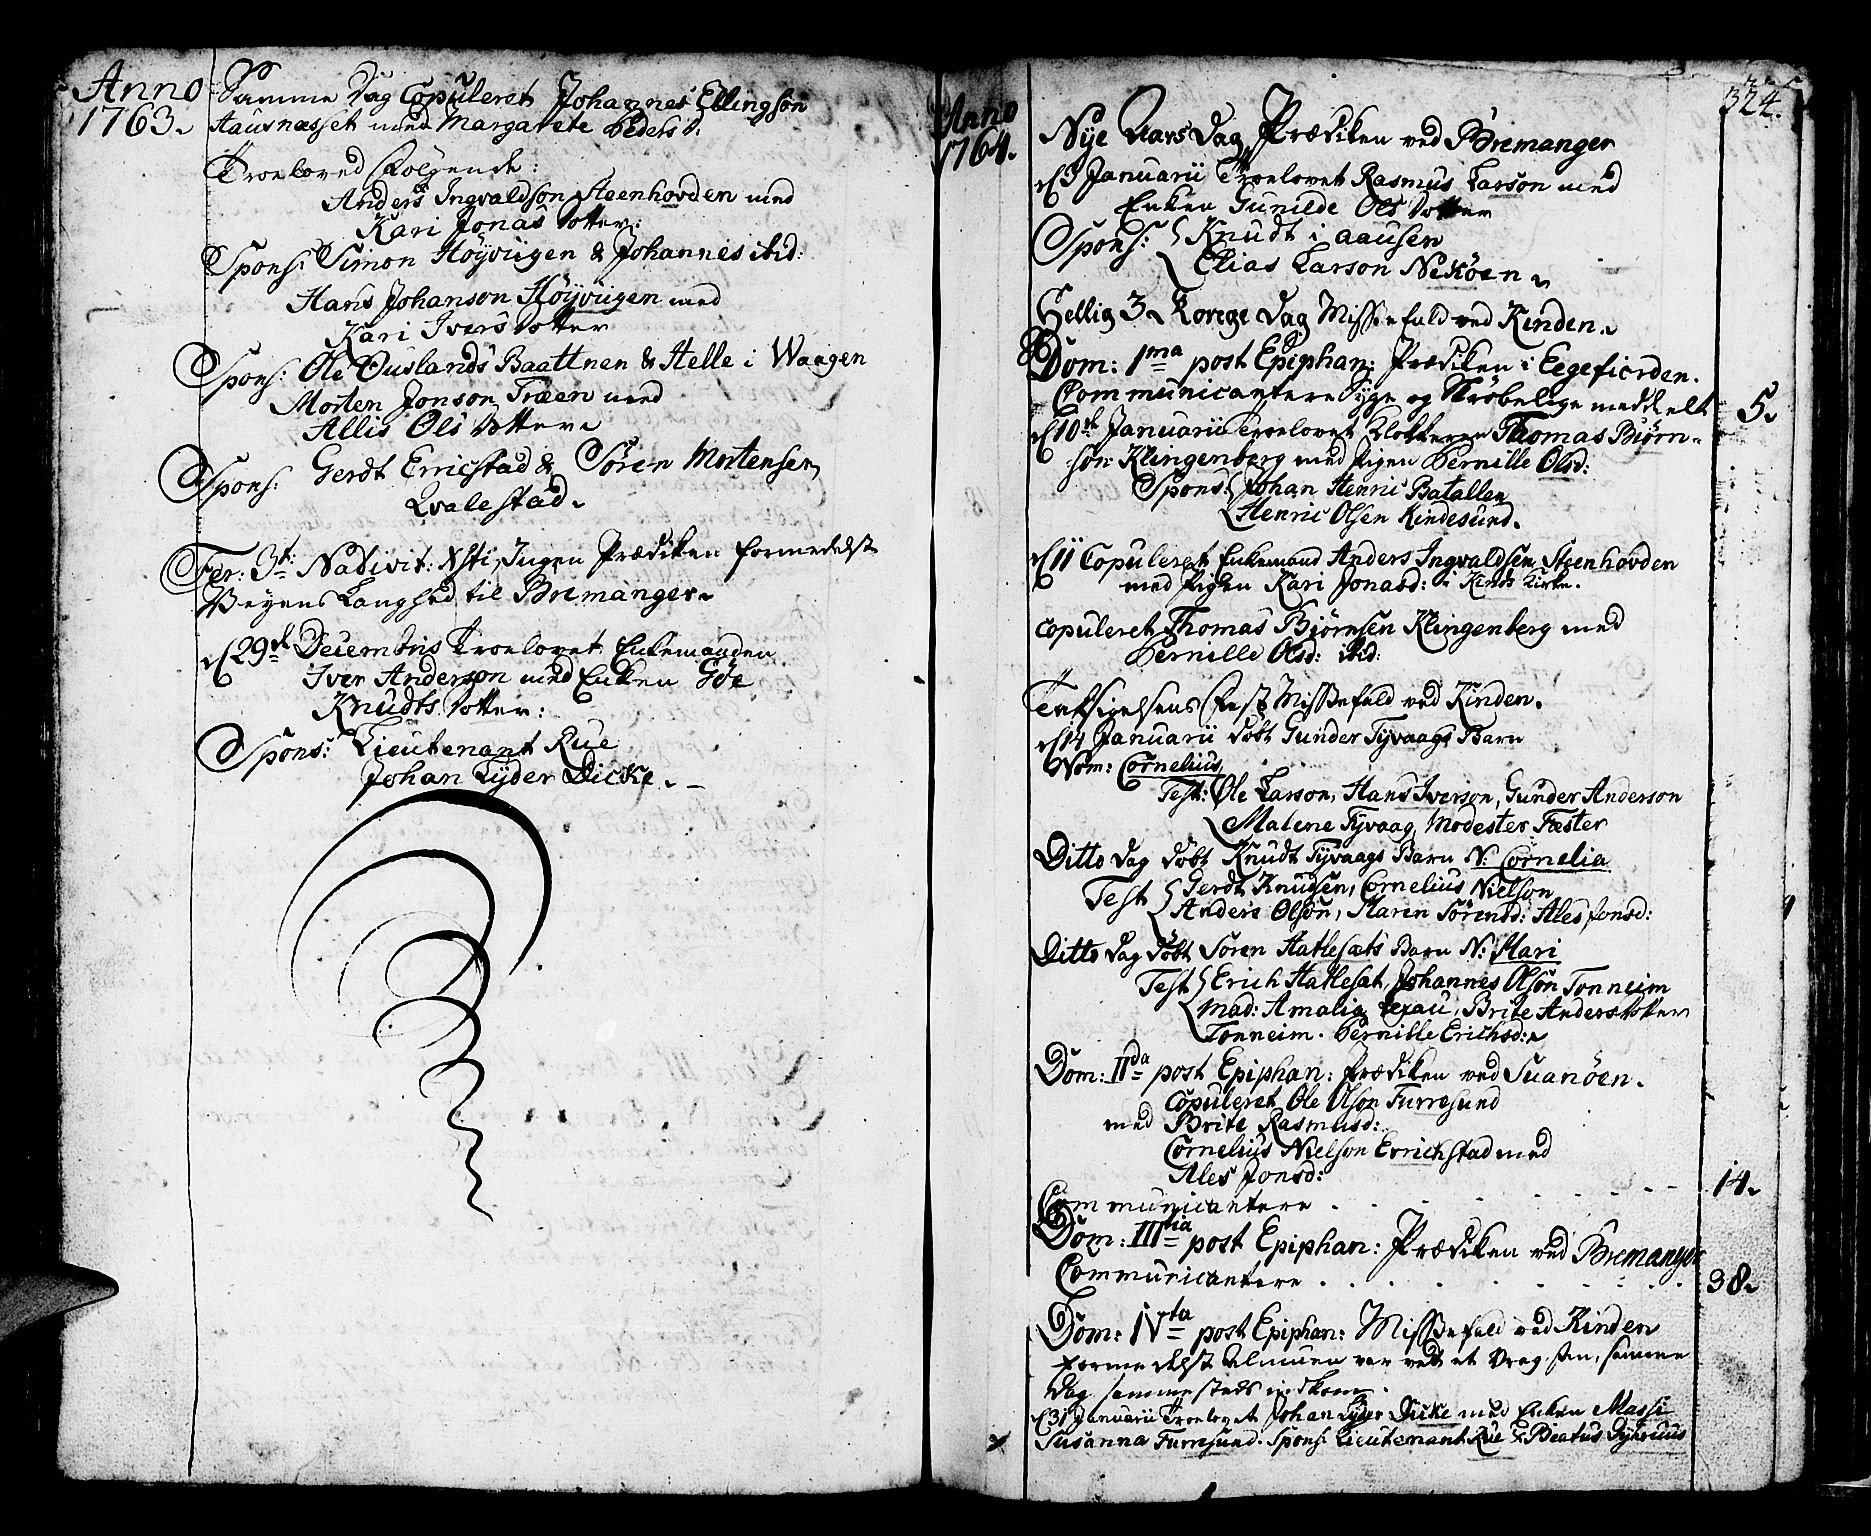 Anno
1763.
Samme Dag Copuleret Johannes Ellingson
Hausnæsset med Margarete Peders D:
Troeloved Følgende:
Anders Ingvaldson Steenhovden med
Kari Jonas Dotter:
Spons: Simon Höyvigen & Johannes ibid:
Hans Johanson Höyvigen med
Kari Ivers Dotter
Spons: Ole Huslands Baattnen & Helle i Waagen
Morten Jonson Træen med
Allis Ols Dotter
Spons: Gerdt Erricstad & Sören Mortensen
Qvalestad.
Fer: 3t: Nativit: Xsti, Ingen Prædiken formedelst
Veyens Langhed til Bremanger.
d 29de Decembris Troelovet Enkemanden
Iver Anderson med Enken Göe
Knudts Dotter:
Spons: Lieutenant Rue
Johan Tyder Dicke.
324.
Anno
1764.
Nye Aars Dag Prædiken ved Bremanger
d 3 Januarii Troelovet Rasmus Larson med
Enken Gunilde Ols Dotter
Spons: Knudt i Aausen
Elias Larson Nekøen
Hellig 3 Konge Dag Missefald ved Kinden.
Dom: 1ma post Epiphan: Prædiken i Eegefiorden.
Communicantere Syge og Skrøbelige meddelt 5.
d 10de Januarii Troelovet Klokkeren Thomas Biørn-
søn Klingenberg med Pigen Pernille Olsd:
Spons: Johan Henric Batallen
Henric Olsen Kindesund.
d 11 Copuleret Enkemand Anders Ingvaldsen Steenhovden
med Pigen Kari Jonasd: i Kinds Kirke.
copuleret Thomas Bjørnsen Klingenberg med
Pernille Olsd: ibid:
Taksigelsens Fest Missefald ved Kinden.
d 14 Januarii Döbt Gunder Tyvaags Barn
Nom: Cornelius
Test: Ole Larson, Hans Iverson, Gunder Anderson
Malene Tyvaag, Modester Fester
Ditto Dag Döbt Knudt Tyvaags Barn N: Cornelia
Test Gerdt Knudsen, Cornelius Nielson
Anders Olson, Maren Sörensd: Ales Jonsd:
Ditto Dag Döbt Sören Hatlesæts Barn N: Mari
Test Erich Hatleset, Johannes Olson Tonneim
Mad: Amalia Lexau, Brite Anders Dotter
Tonneim. Pernille Erichsd:
Dom: IIda post Epiphan: Prædiken ved Suanöen.
Copuleret Ole Olson Furresund
med Brite Rasmusd:
Cornelius Nielson Errichstad med
Ales Jonsd:
Communicantere . . . . 14.
Dom: IIItia post Epiphan: Prædiken ved Bremanger
Communicantere . . . . 38.
Dom: IVta post Epiphan: Missefald ved Kinden
formedelst Almuen var ved et Vrag som samme
Dag sammesteds indkom.
d 31 Januarii Troelovet Johan Tyder Dicke med Enken Massi
Susanna Furresund. Spons: Lieutenant Rue & Beatus Dyhrius